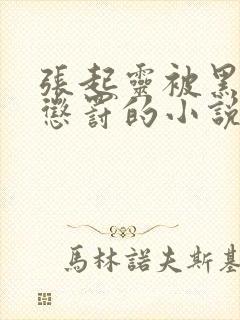 張起靈被黑
懲罰的小說
馬林諾夫斯基